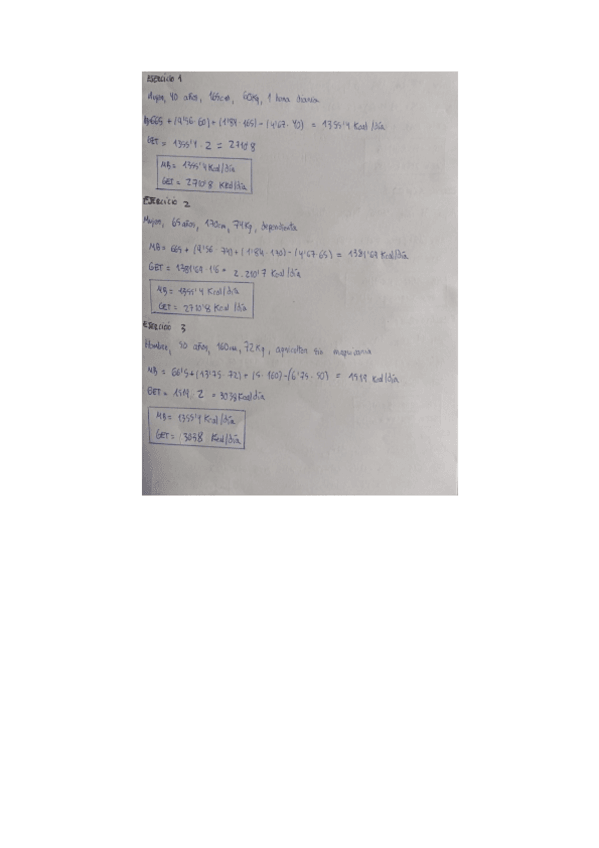 Ejercicio 1
Mujer, 40 años, 165cm, 60Kg, 1 hora diaria
665 + (9'56·60) + (1'84·165) - (4'67·40) = 1355'4 Kcal/día
GET = 1355'4 · 2 = 2710'8
MB = 1355'4 Kcal/día
GET = 2710'8 Kcal/día
EJERCICIO 2
Mujer, 65 años, 170cm, 74Kg, dependienta
MB = 665 + (9'56 · 74) + (1'84 · 170) - (4'67·65) = 1381'69 Kcal/día
GET = 1381'69 · 1'6 = 2.210'7 Kcal/día
MB = 1355'4 Kcal/día
GET = 2710'8 Kcal/día
EJERCICIO 3
Hombre, 50 años, 160cm, 72Kg, agricultor sin maquinaria
MB = 66'5 + (13'75 · 72) + (5 · 160) - (6'75 · 50) = 1519 Kcal/día
GET = 1519 · 2 = 3038 Kcal/día
MB = 1355'4 Kcal/día
GET = 3038 Kcal/día